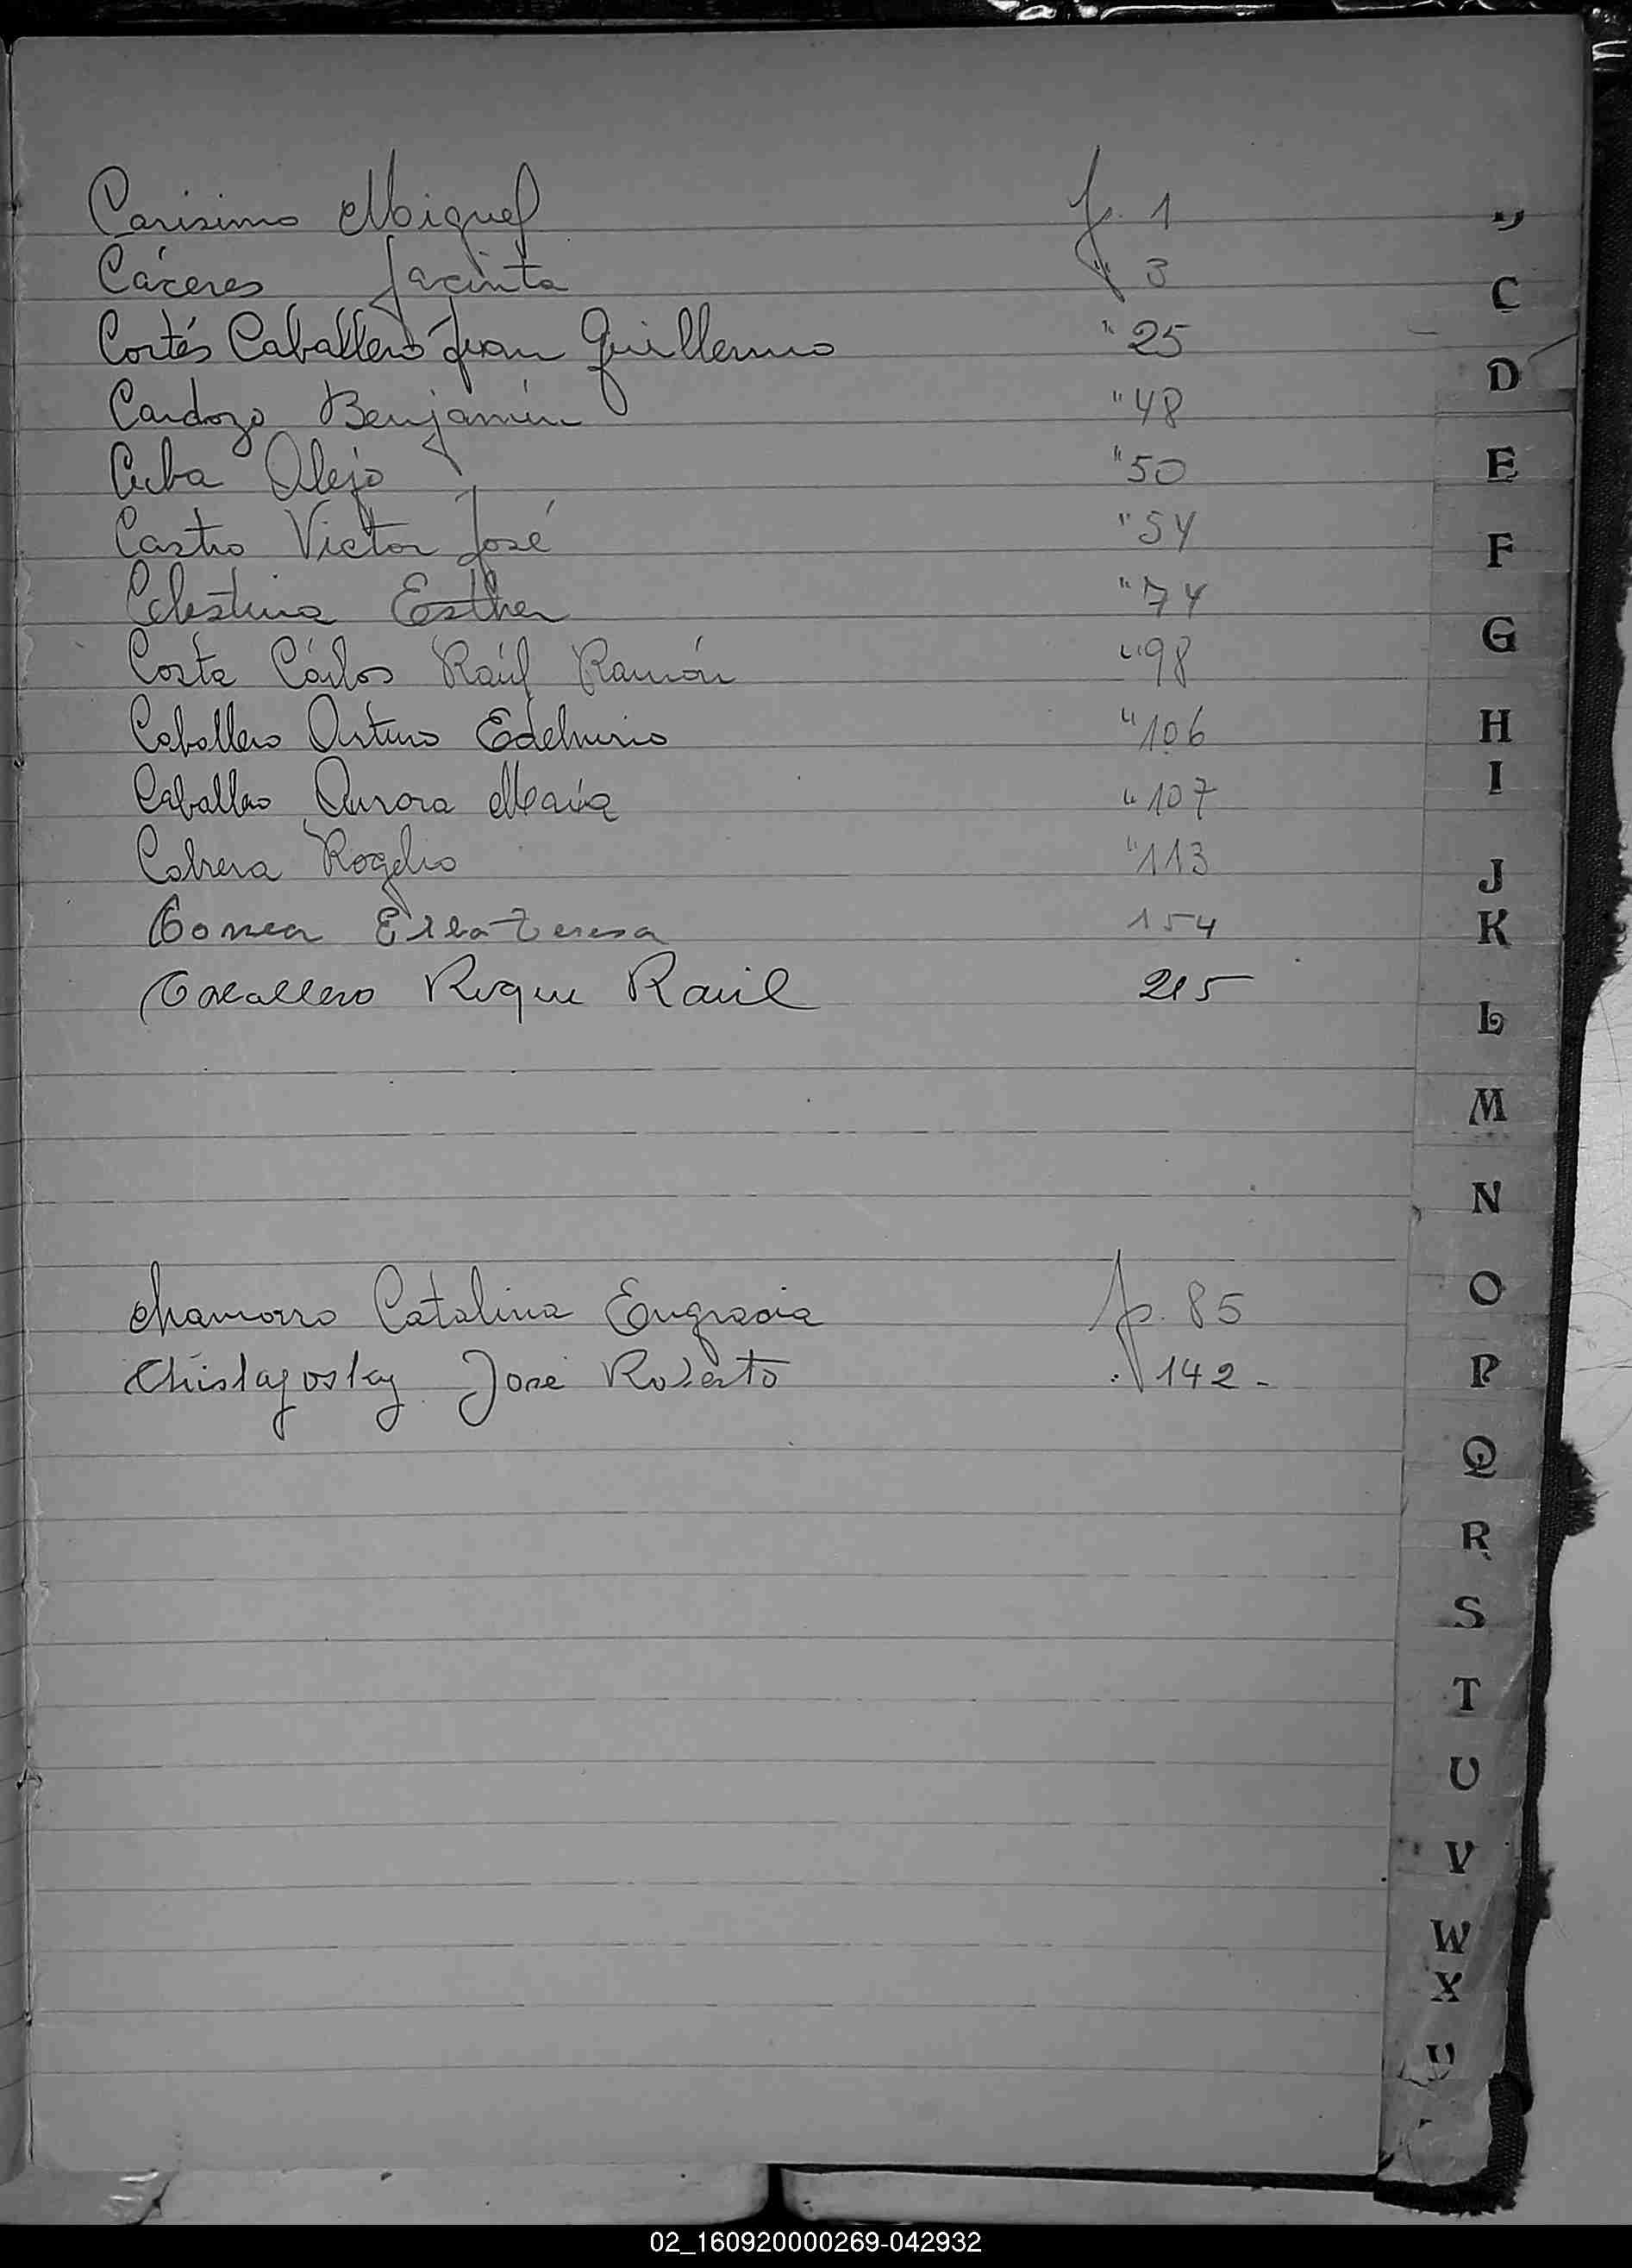 Carisimo Miguel f. 1
Cáceres Jacinta " 3
Cortés Caballero Juan Guillermo " 25
Cardozo Benjamín " 48
Cuba Alejo " 50
Castro Victor José " 54
Celestina Esther " 74
Costa Cárlos Raúl Ramón " 98
Caballero Arturo " 106
Caballero Aurora María " 107
Cabrera Rogelio " 113
Teresa 154
Caballero Roque Raúl 215
Chamorro Catalina Engracia f. 85
José Roberto 142-
C
D
E
F
G
H
I
J
K
L
M
N
O
P
Q
R
S
T
U
V
W
X
02_160920000269-042932